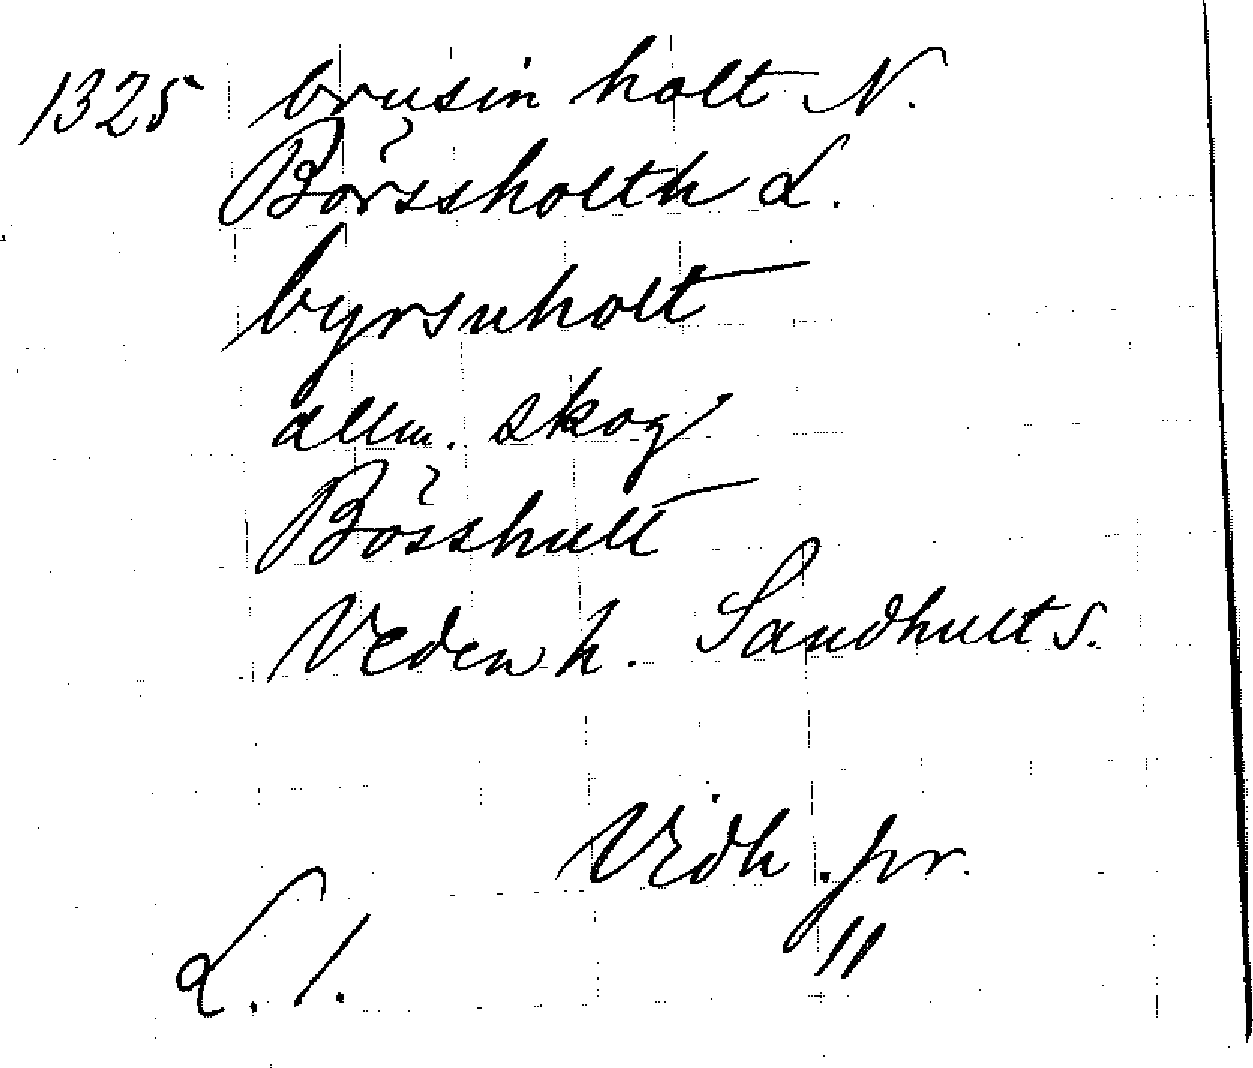 1325 brusin holt N.
Börssholth L.
byrsnholt
allm. skog
Bösshult
Veden h. Sandhult s.
Vidh. pr.
L. 1. "